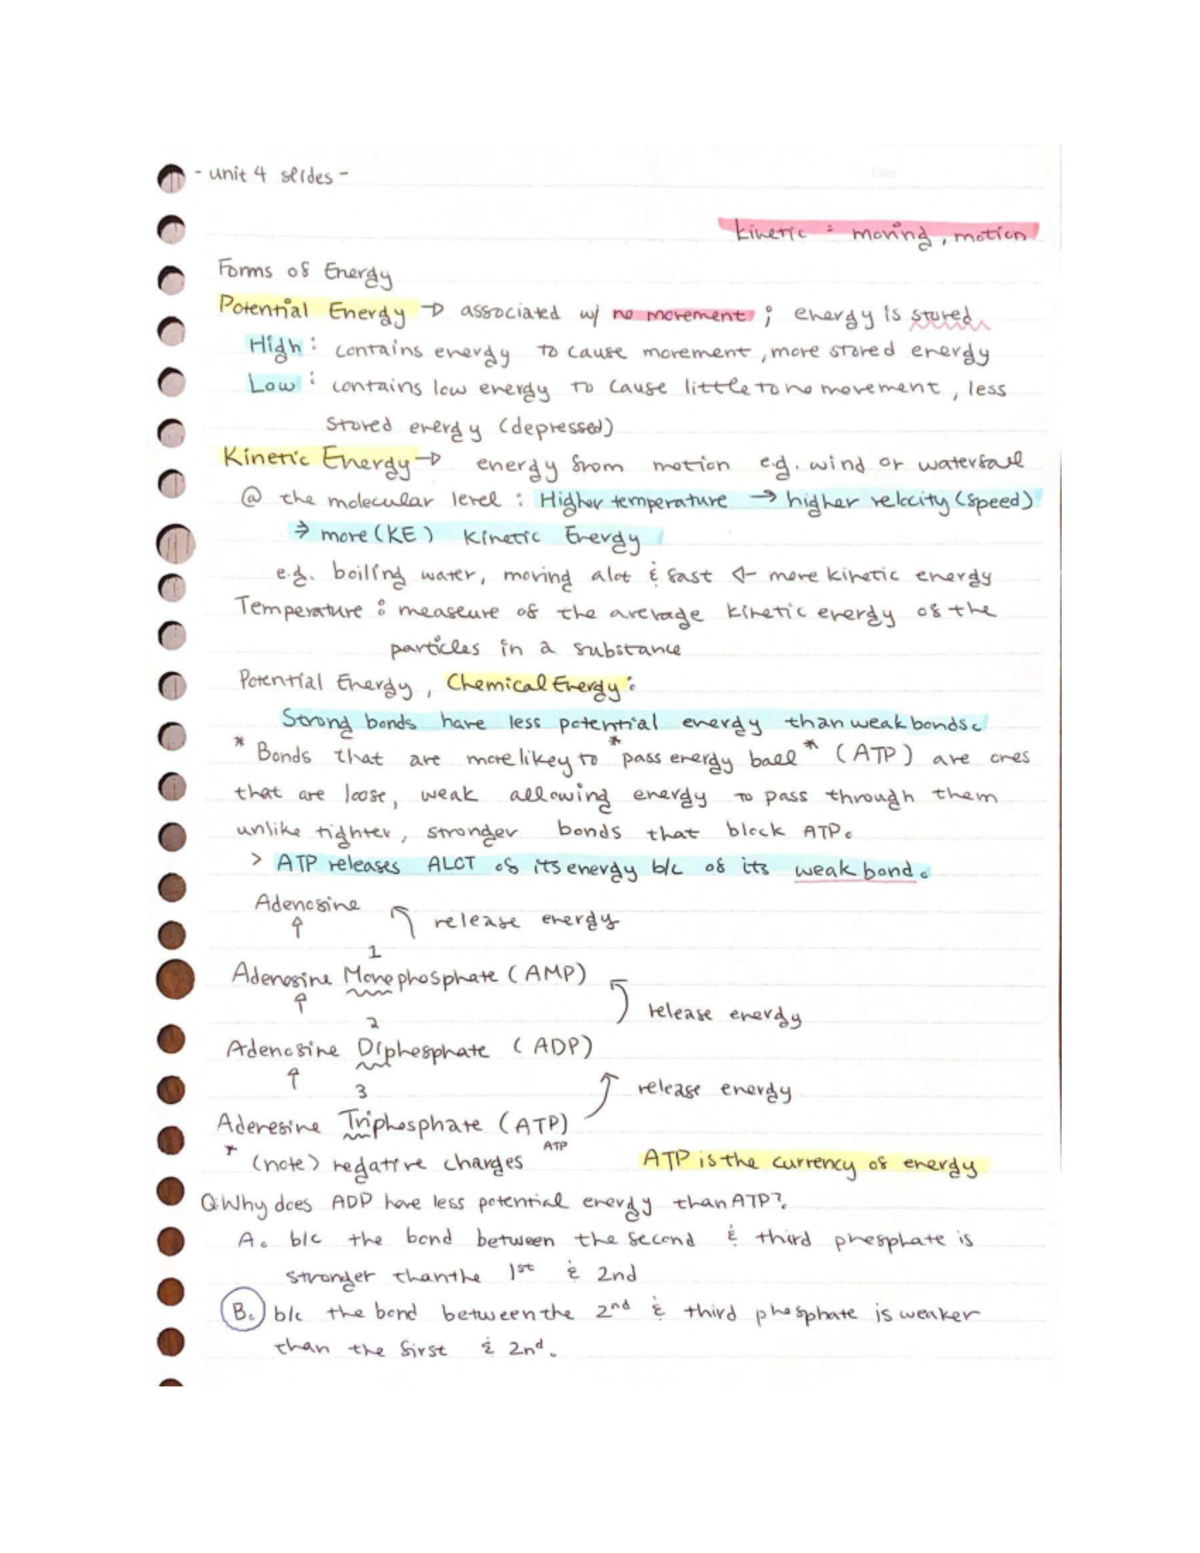 - unit 4 slides -
kinetic : moving, motion
Forms of Energy
Potential Energy → associated w/ no movement ; energy is stored
High : contains energy to cause movement, more stored energy
Low : contains low energy to cause little to no movement, less
stored energy (depressed)
Kinetic Energy → energy from motion e.g. wind or waterfall
@ the molecular level : Higher temperature → higher velocity (speed)
→ more (KE) Kinetic Energy
e.g. boiling water, moving alot & fast ← more kinetic energy
Temperature : measure of the average kinetic energy of the
particles in a substance
Potential Energy, Chemical Energy :
Strong bonds have less potential energy than weak bonds.
* Bonds that are more likey to *pass energy ball* (ATP) are ones
that are loose, weak allowing energy to pass through them
unlike tighter, stronger bonds that block ATP.
> ATP releases ALOT of its energy b/c of its weak bond.
Adenosine
↑ ↖ release energy
1
Adenosine Monophosphate (AMP)
↑ release energy
2
Adenosine Diphosphate (ADP)
↑ release energy
3
Adenosine Triphosphate (ATP)
ATP
* (note) negative charges ATP is the currency of energy
Q: Why does ADP have less potential energy than ATP?
A. b/c the bond between the second & third phosphate is
stronger than the 1st & 2nd
B. b/c the bond between the 2nd & third phosphate is weaker
than the first & 2nd.